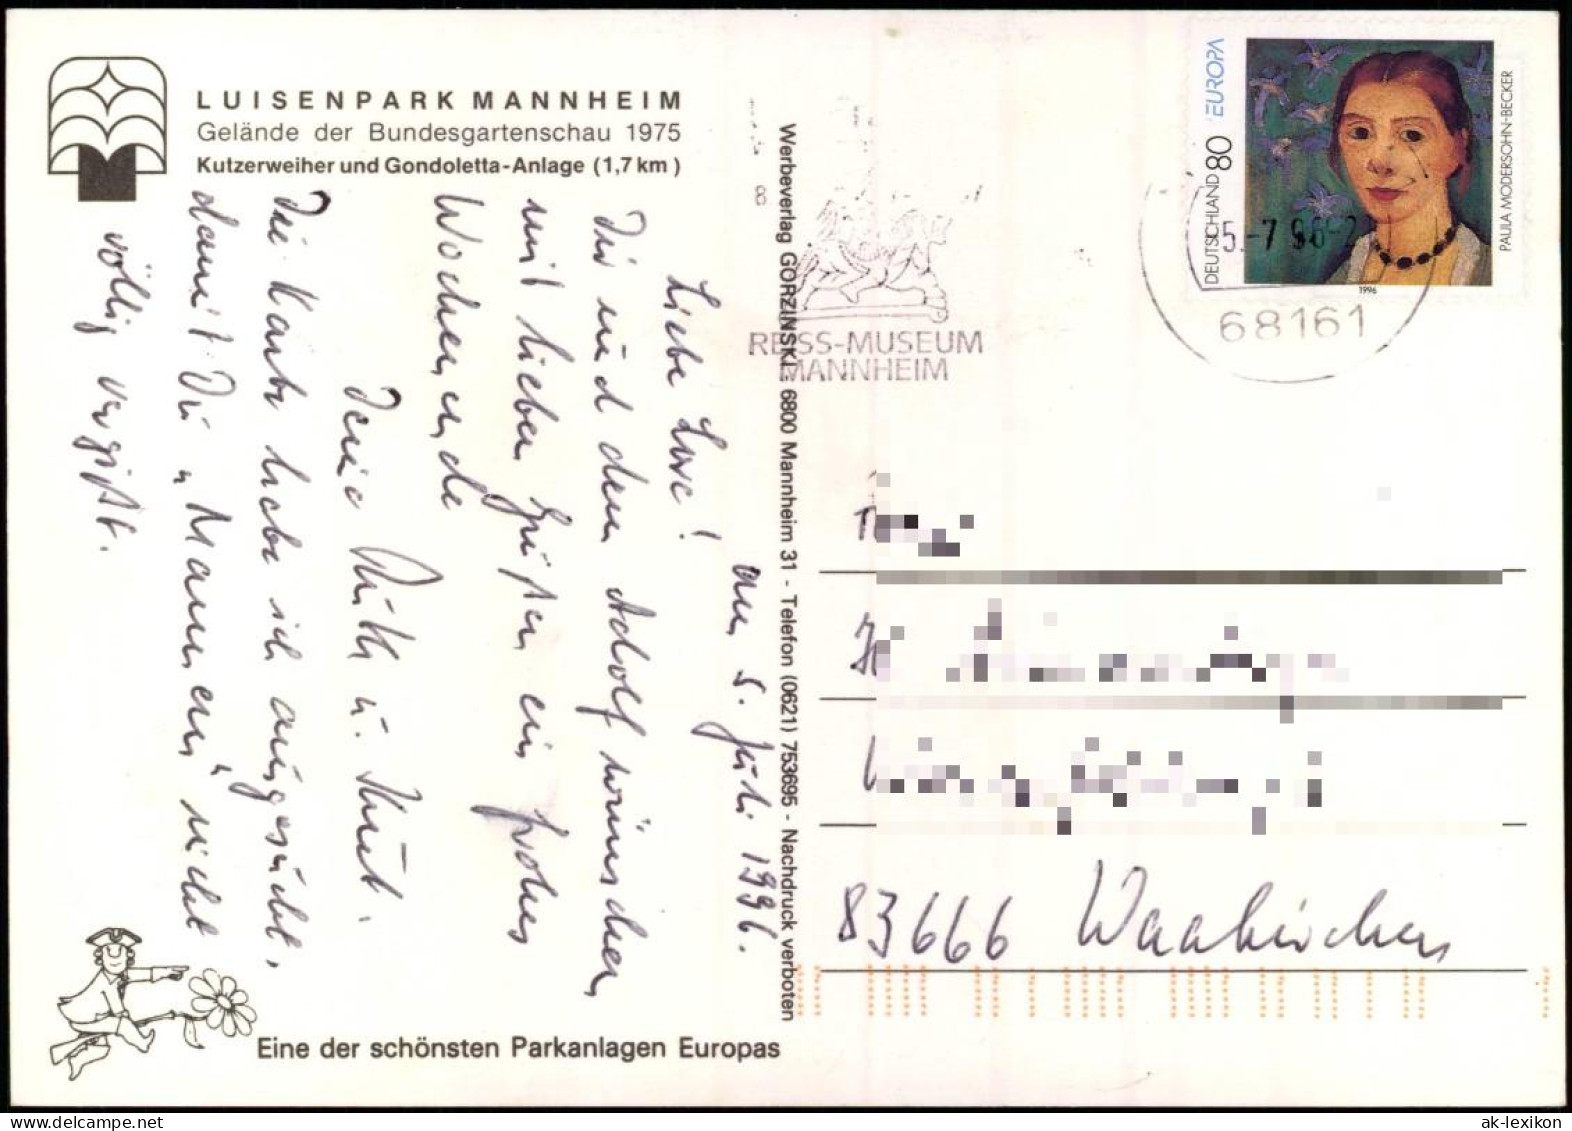 LUISENPARK MANNHEIM
Gelände der Bundesgartenschau 1975
Kutzerweiher und Gondoletta-Anlage (1,7 km)
am 5. Juli 1996.
Liebe Lore!
Dir und dem Adolf wünschen
wir lieben Grüßen ein frohes
Wochenende
Deine Ruth u. Knut.
Die Karte habe ich ausgesucht,
damit Du "Mannem" nicht
völlig vergißt.
Eine der schönsten Parkanlagen Europas
Werbeverlag GORZINSKI · 6800 Mannheim 31 - Telefon (0621) 753695 - Nachdruck verboten
8
REISS-MUSEUM
MANNHEIM
5.-7.96-2
68161
DEUTSCHLAND 80 EUROPA
PAULA MODERSOHN-BECKER
1996
83666 Waakirchen
ak-lexikon